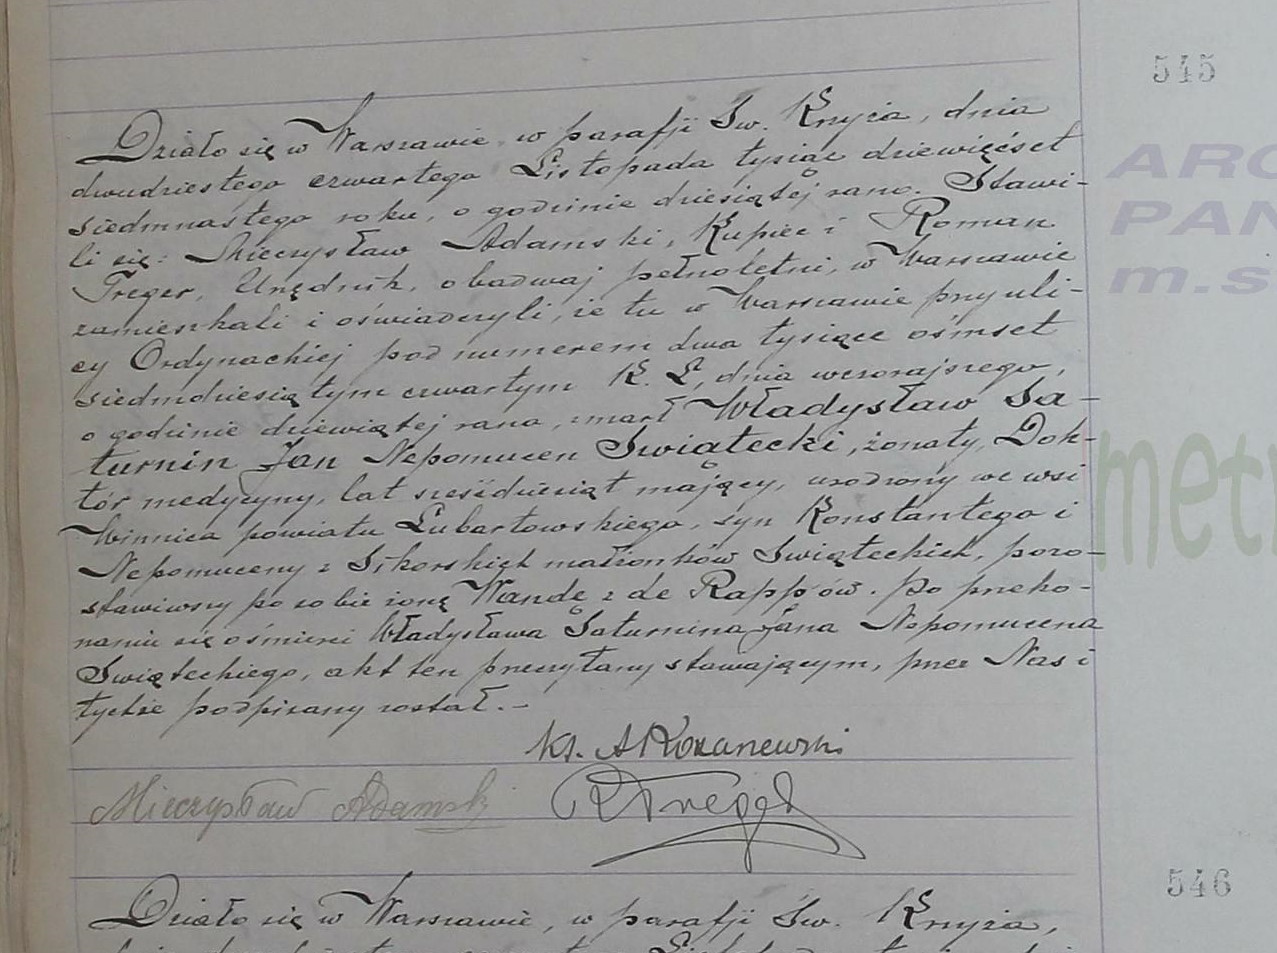 545
Działo się w Warszawie, w parafji Św. Krzyża, dnia
dwudziestego czwartego Listopada tysiąc dziewięćset
siedmnastego roku, o godzinie dziesiątej rano. Stawi-
li się: Mieczysław Adamski, Kupiec i Roman
Treger, Urzędnik, obadwaj pełnoletni, w Warszawie
zamieszkali i oświadczyli, że tu w Warszawie przy uli-
cy Ordynackiej pod numerem dwa tysiące ośmset
siedmdziesiątym czwartym K. L, dnia wczorajszego,
o godzinie dziewiątej rano, zmarł Władysław Sa-
turnin Jan Nepomucen Swiątecki, żonaty, Dok-
tór medycyny, lat sześćdziesiąt mający, urodzony we wsi
Winnica powiatu Lubartowskiego, syn Konstantego i
Nepomuceny z Sikorskich małżonków Swiąteckich, pozo-
stawiwszy po sobie żonę Wandę z de Rapp'ów. Po przeko-
naniu się o śmierci Władysława Saturnina Jana Nepomucena
Swiąteckiego, akt ten przeczytany stawającym, przez Nas i
tychże podpisany został. -
Ks. A
Mieczysław Adamski RTreger
546
Działo się w Warszawie, w parafji Św. Krzyża,
ARC
PAN
m.s
met